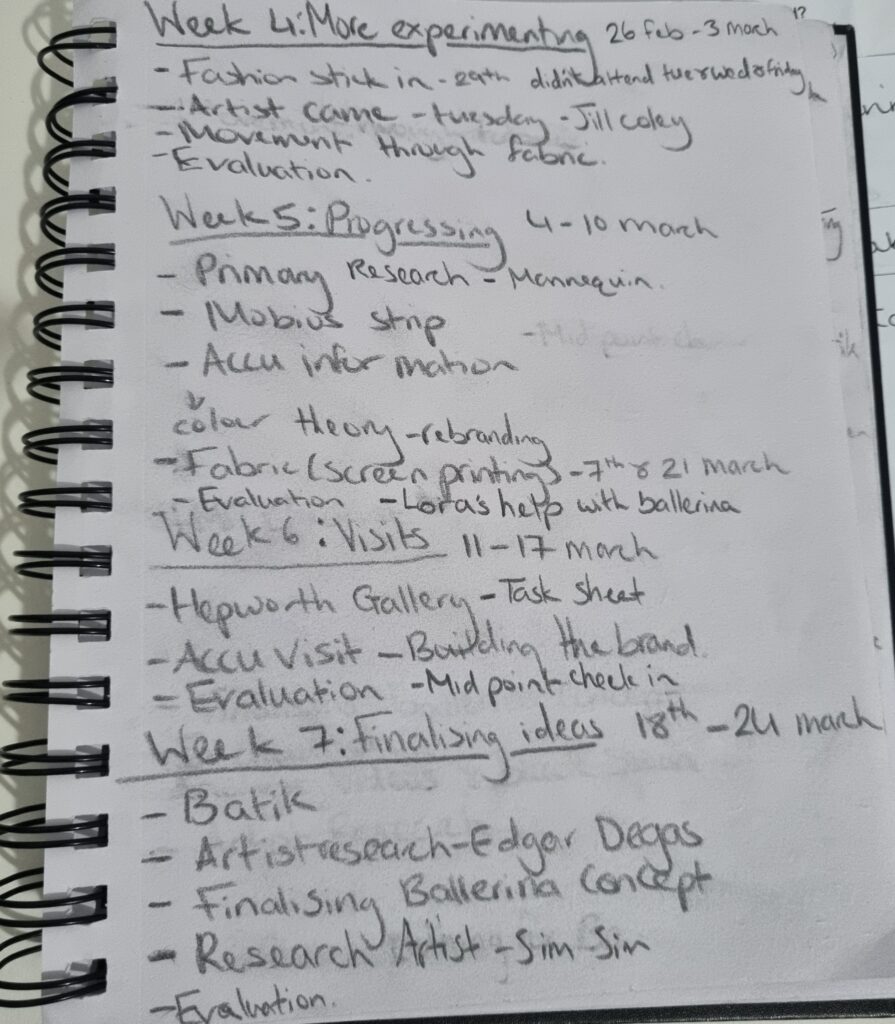 Week 4: More experimenting 26 feb - 3 march
- Fashion stick in - 29th didn't attend tue & wed & friday
- Artist came - tuesday - Jill coley
- Movement through fabric.
- Evaluation.
Week 5: Progressing 4 - 10 march
- Primary Research - Mannequin.
- Mobius strip
- Accu information
colour theory - rebranding
- Fabric (screen printing) - 7th & 21 march
- Evaluation - Lora's help with ballerina
Week 6: Visits 11 - 17 march
- Hepworth Gallery - Task Sheet
- Accu Visit - Building the brand.
- Evaluation - Mid point check in
Week 7: Finalising ideas 18th - 24 march
- Batik
- Artist research - Edgar Degas
- Finalising Ballerina Concept
- Research Artist - Sim Sin
- Evaluation.